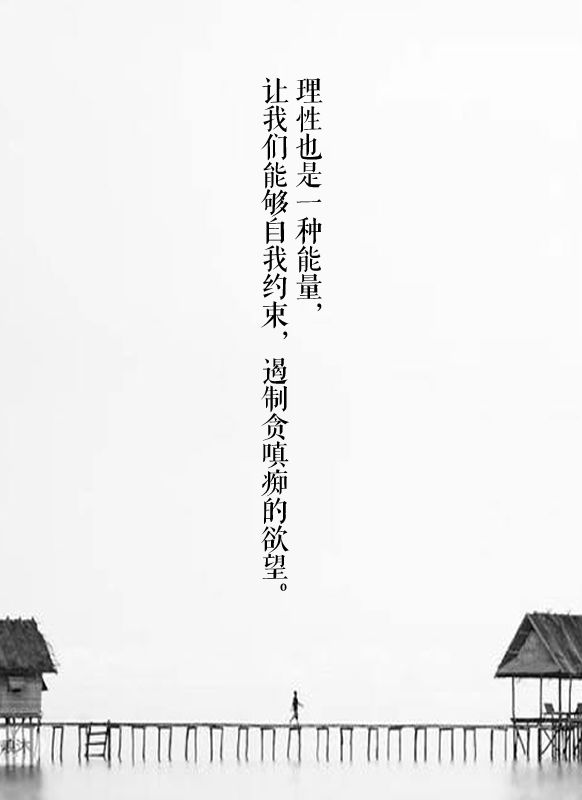 理性也是一种能量，
让我们能够自我约束，遏制贪嗔痴的欲望。